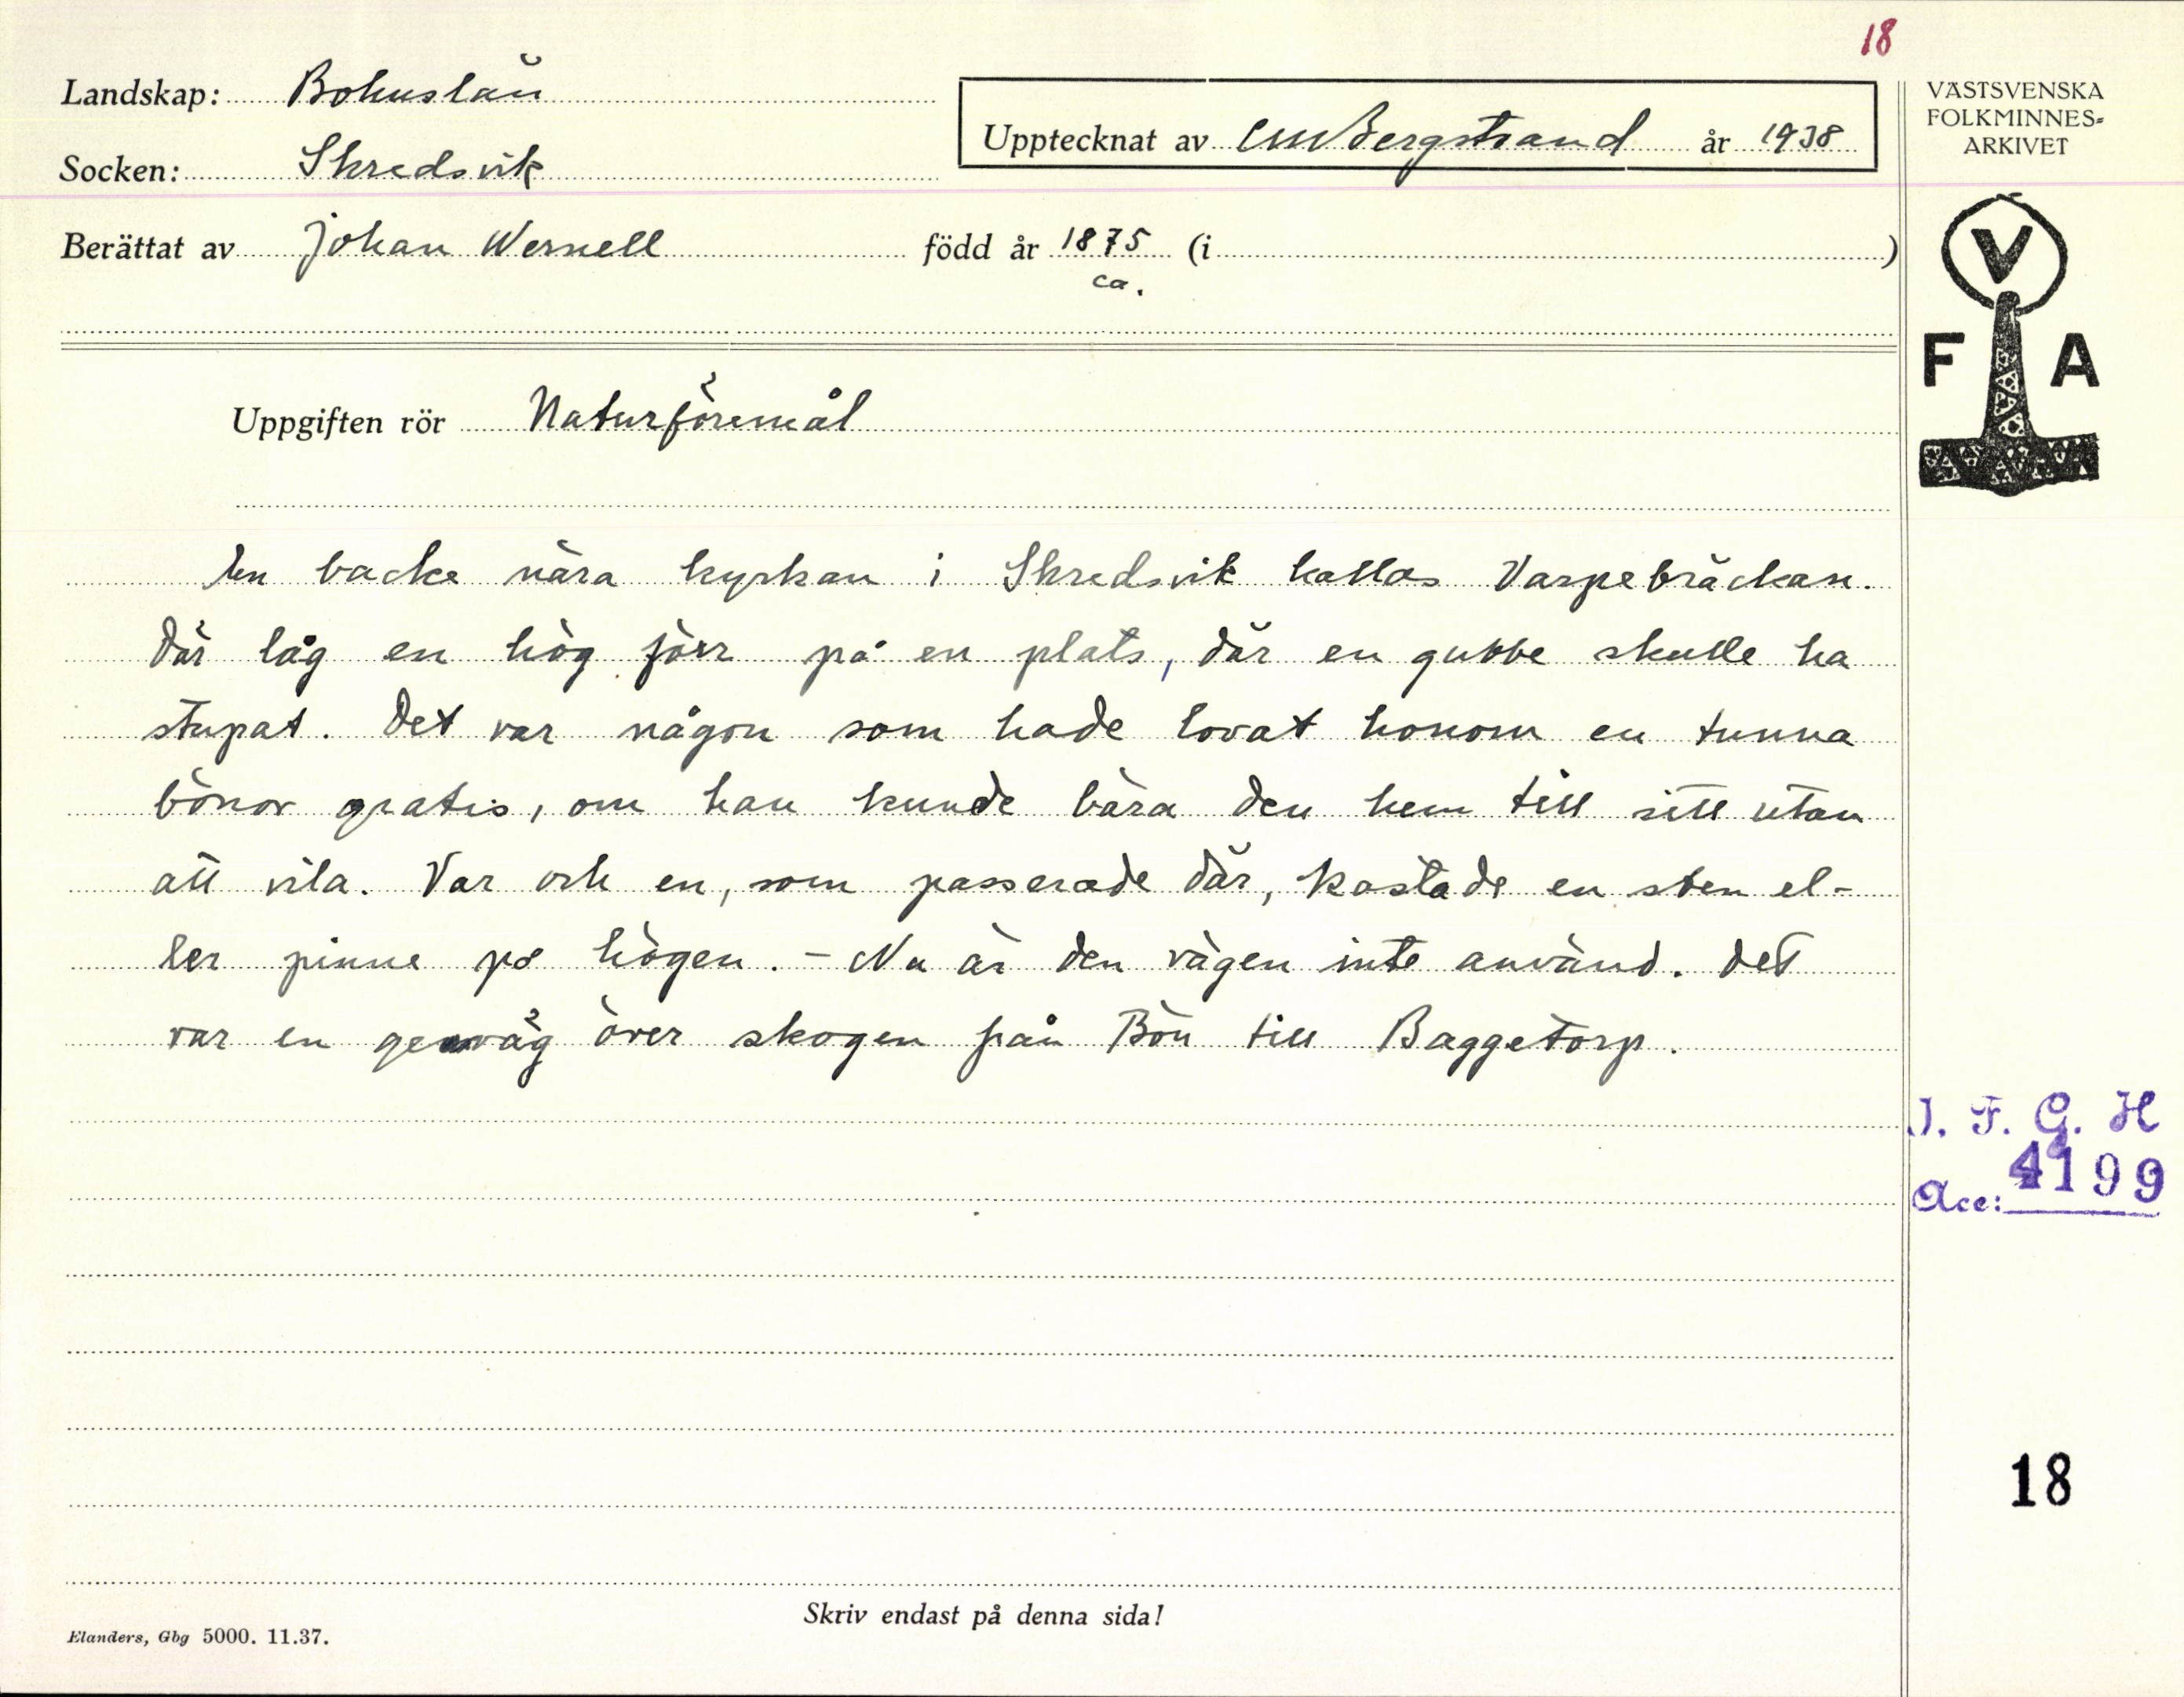 18
Landskap: Bohuslän
Upptecknat av CMBergstrand år 1938
Socken: Skredsvik
Berättat av Johan Wernell född år 1875 (i )
ca.
VÄSTSVENSKA
FOLKMINNES-
ARKIVET
V
F A
Uppgiften rör Naturföremål
En backe nära kyrkan i Skredsvik kallas Varpebräckan.
Där låg en hög förr på en plats, där en gubbe skulle ha
stupat. Det var någon som hade lovat honom en tunna
bönor gratis, om han kunde bära den hem till sitt utan
att vila. Var och en, som passerade där, kastade en sten el-
ler pinne på högen. - Nu är den vägen inte använd. Det
var en genväg över skogen från Bön till Baggetorp.
I. F. G. H
Acc: 4199
18
Skriv endast på denna sida!
Elanders, Gbg 5000. 11.37.